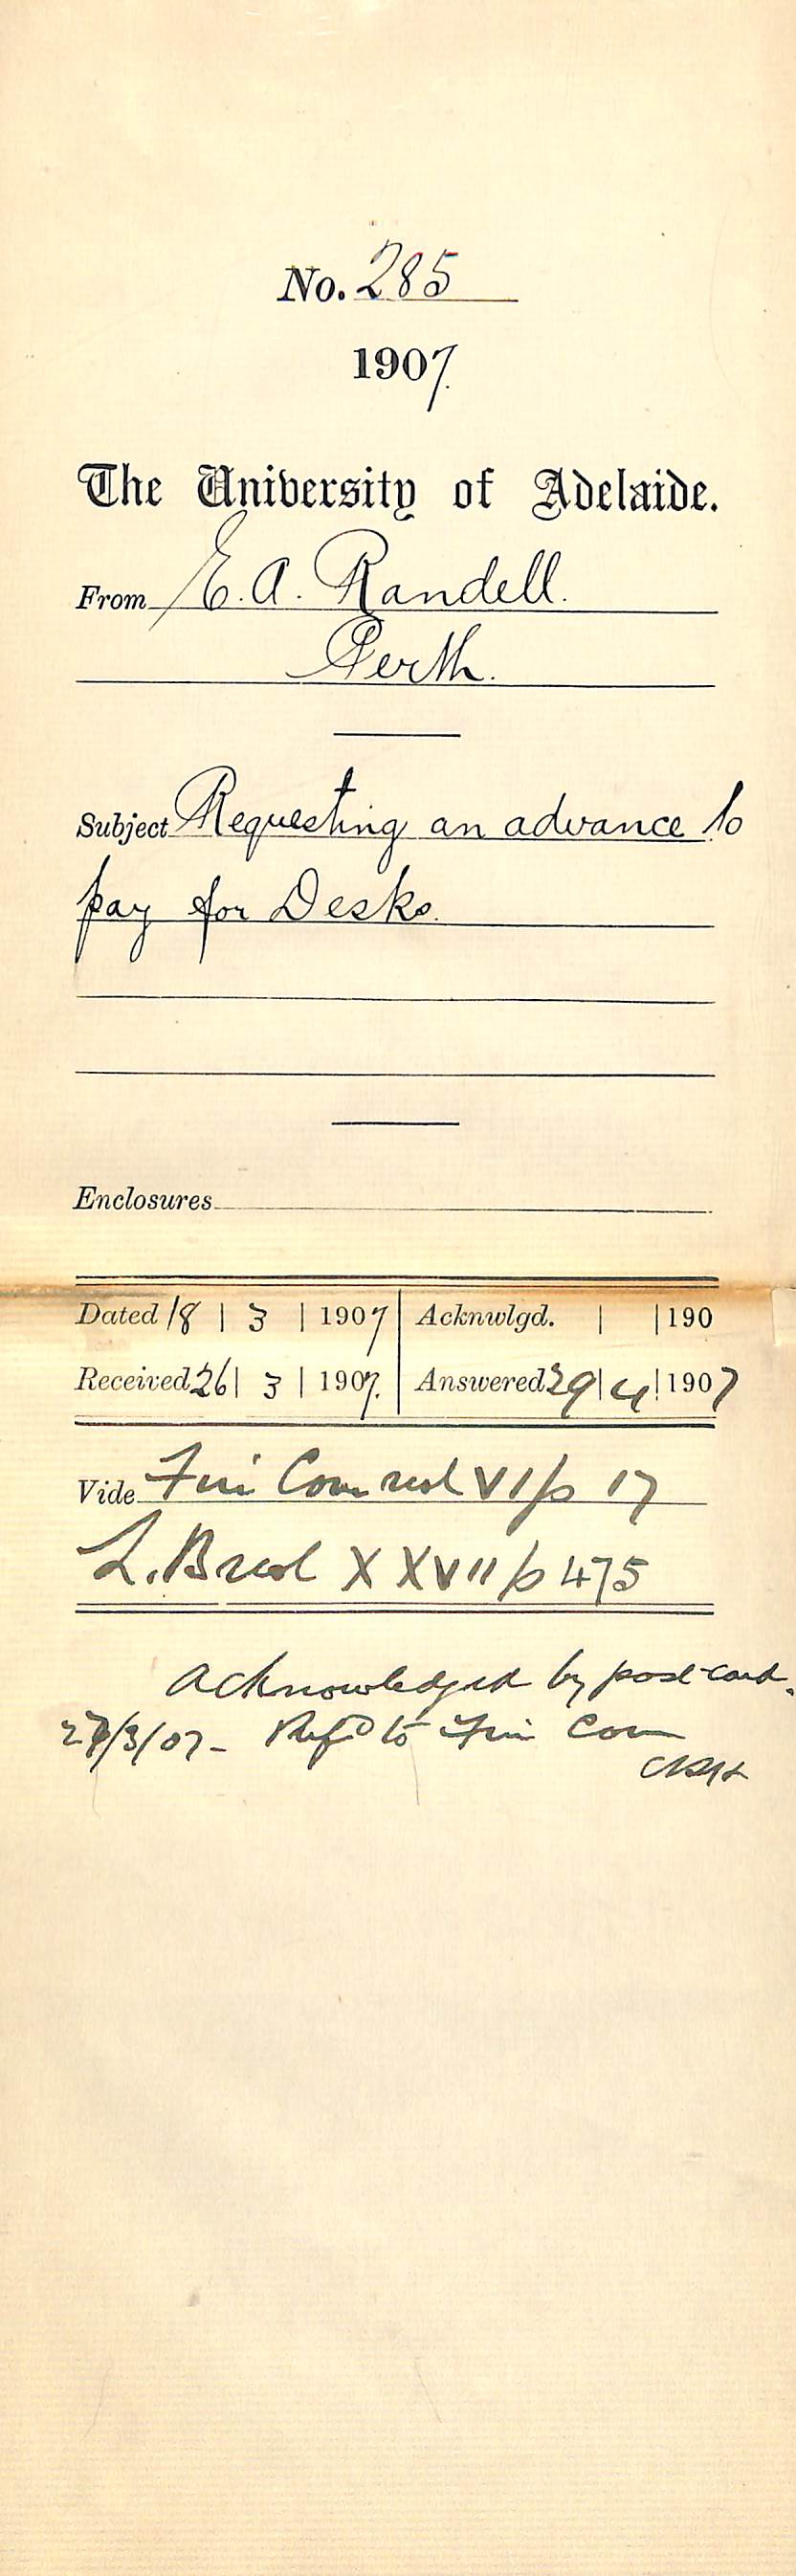 No. 285
1907.
The University of Adelaide.
From E. A. Randell.
Perth.
Subject Requesting an advance to
pay for Desks.
Enclosures
Dated 18 | 3 | 1907 | Acknwlgd. | | 190
Received 26 | 3 | 1907. | Answered 29 | 4 | 1907
Vide Fin Com vol VI/p 17
L. B vol XXVII/p 475
Acknowledged by post-card.
27/3/07 - Refd to Fin Com